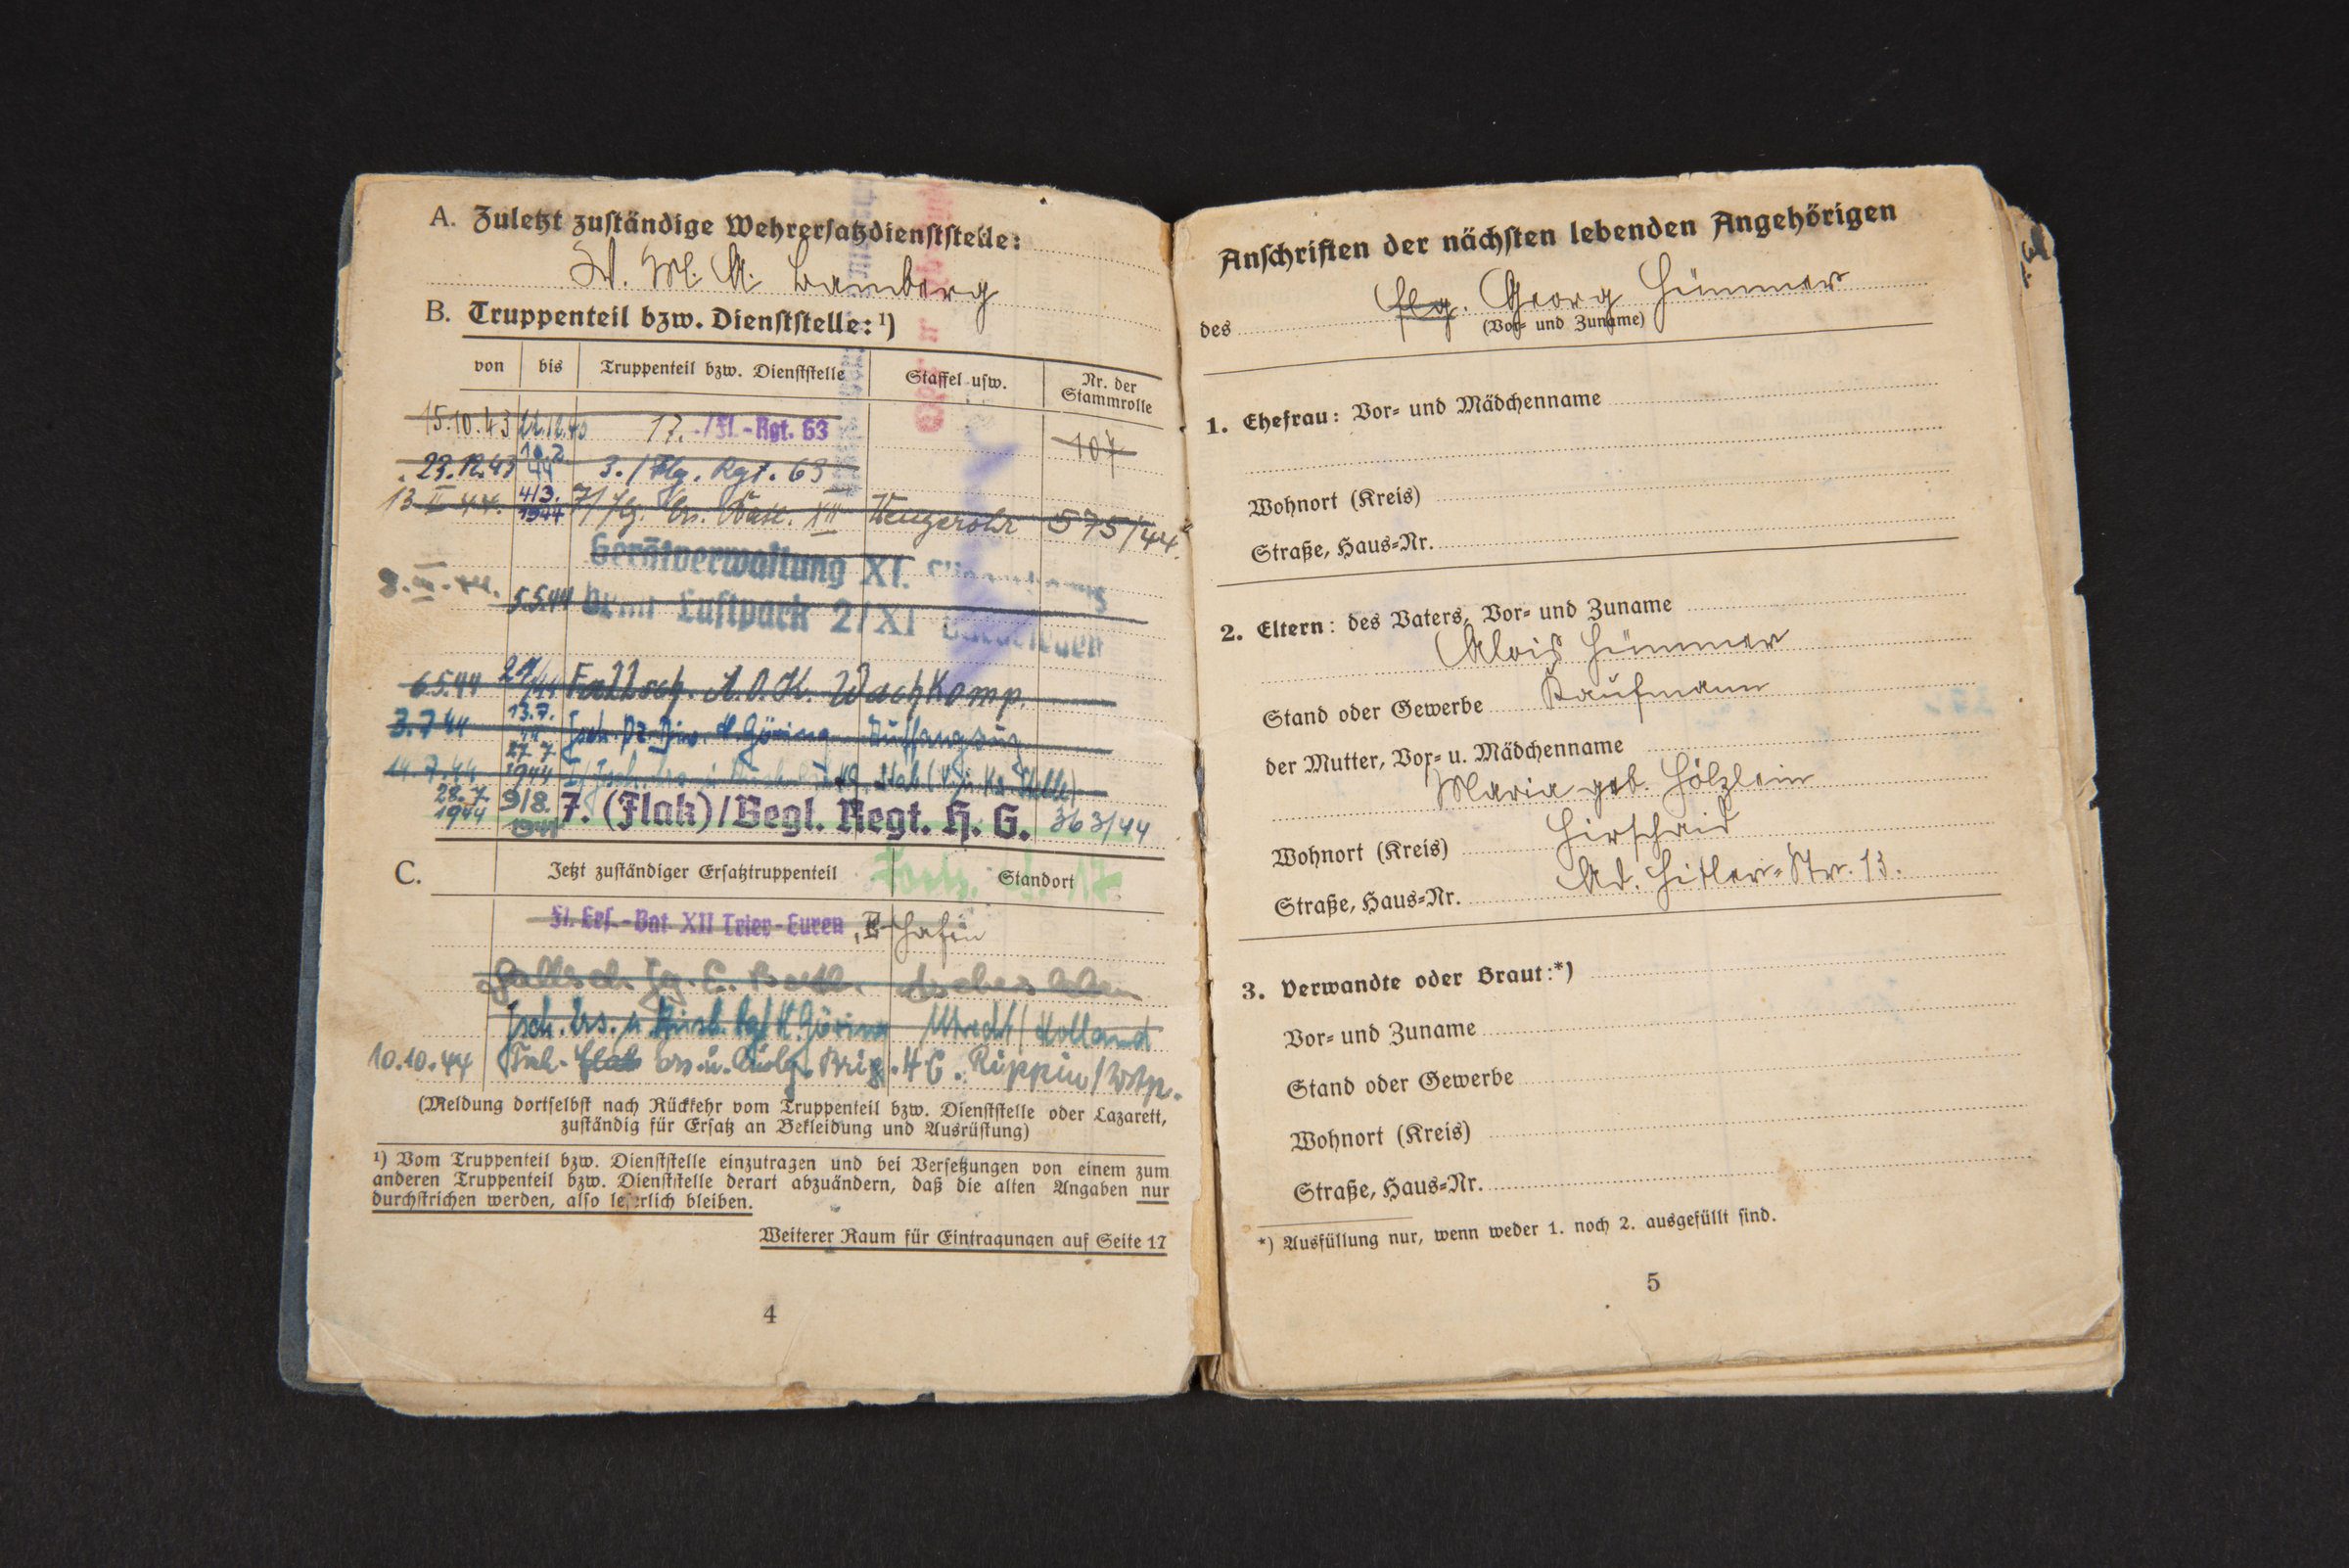 A. Zuletzt zuständige Wehrersatzdienststelle:
W. M. A. Bamberg
B. Truppenteil bzw. Dienststelle: ¹)
von bis Truppenteil bzw. Dienststelle Staffel usw. Nr. der Stammrolle
15.10.43 22.12.43 17. /Fl.-Rgt. 63 107
23.12.43 10.2. 44 3./Flg. Rgt. 63
13 II 44. 4/3. 1944 7/Flg. Ers. Batl. XII Wengerohr 575/44
Gerätverwaltung XI.
5.5.44 beim Luftpark 2/XI
6.5.44 44 Fallsch. A.O.K. Wachkomp.
3.7.44 13.7. 44 Fsch. Pz. Div. H. Göring Auffangzug
14.7.44 27.7. 1944
28.7. 1944 9/8. 1944 7. (Flak)/Begl. Regt. H. G. 363/44
C. Jetzt zuständiger Ersatztruppenteil Standort
Forts. S. 17
Fl. Ers.-Bat. XII Trier-Euren,
Fallsch. Jg. E. Batl. Aschersleben
Fsch. Ers. u. Ausb. Rgt H. Göring Utrecht/Holland
10.10.44 Ers. u. Ausb. Brig. H G. Rippin/Wstp.
(Meldung dortselbst nach Rückkehr vom Truppenteil bzw. Dienststelle oder Lazarett,
zuständig für Ersatz an Bekleidung und Ausrüstung)
¹) Vom Truppenteil bzw. Dienststelle einzutragen und bei Versetzungen von einem zum
anderen Truppenteil bzw. Dienststelle derart abzuändern, daß die alten Angaben nur
durchstrichen werden, also leserlich bleiben.
Weiterer Raum für Eintragungen auf Seite 17
4
Anschriften der nächsten lebenden Angehörigen
des Flg. Georg Hümmer
(Vor- und Zuname)
1. Ehefrau: Vor- und Mädchenname
Wohnort (Kreis)
Straße, Haus-Nr.
2. Eltern: des Vaters, Vor- und Zuname
Alois Hümmer
Stand oder Gewerbe Kaufmann
der Mutter, Vor- u. Mädchenname
Maria geb. Hölzlein
Wohnort (Kreis) Hirschaid
Straße, Haus-Nr. Ad. Hitler-Str. 13.
3. Verwandte oder Braut:*)
Vor- und Zuname
Stand oder Gewerbe
Wohnort (Kreis)
Straße, Haus-Nr.
*) Ausfüllung nur, wenn weder 1. noch 2. ausgefüllt sind.
5